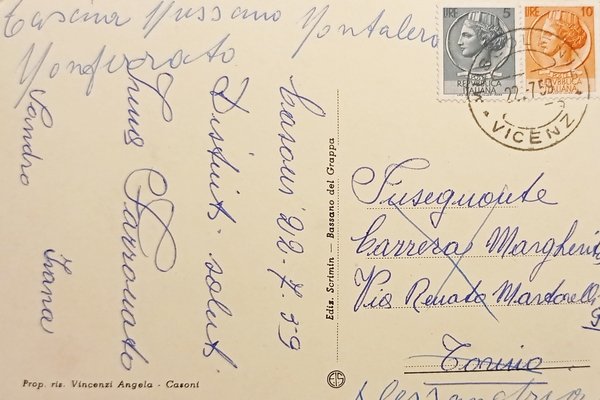 Cascina Mussano Montalero
Monferrato
Casoni 22-7-59
Distinti saluti
Irma Farronato
Sandro Ivana
Prop. ris. Vincenzi Angela - Casoni
Edis. Scrimin - Bassano del Grappa
LIRE 5
REPUBBLICA
ITALIANA
LIRE 10
ITALIANA
22.7.59
VICENZ
Carrera Margherita
Via Renato Martorelli
Torino
Alessandria